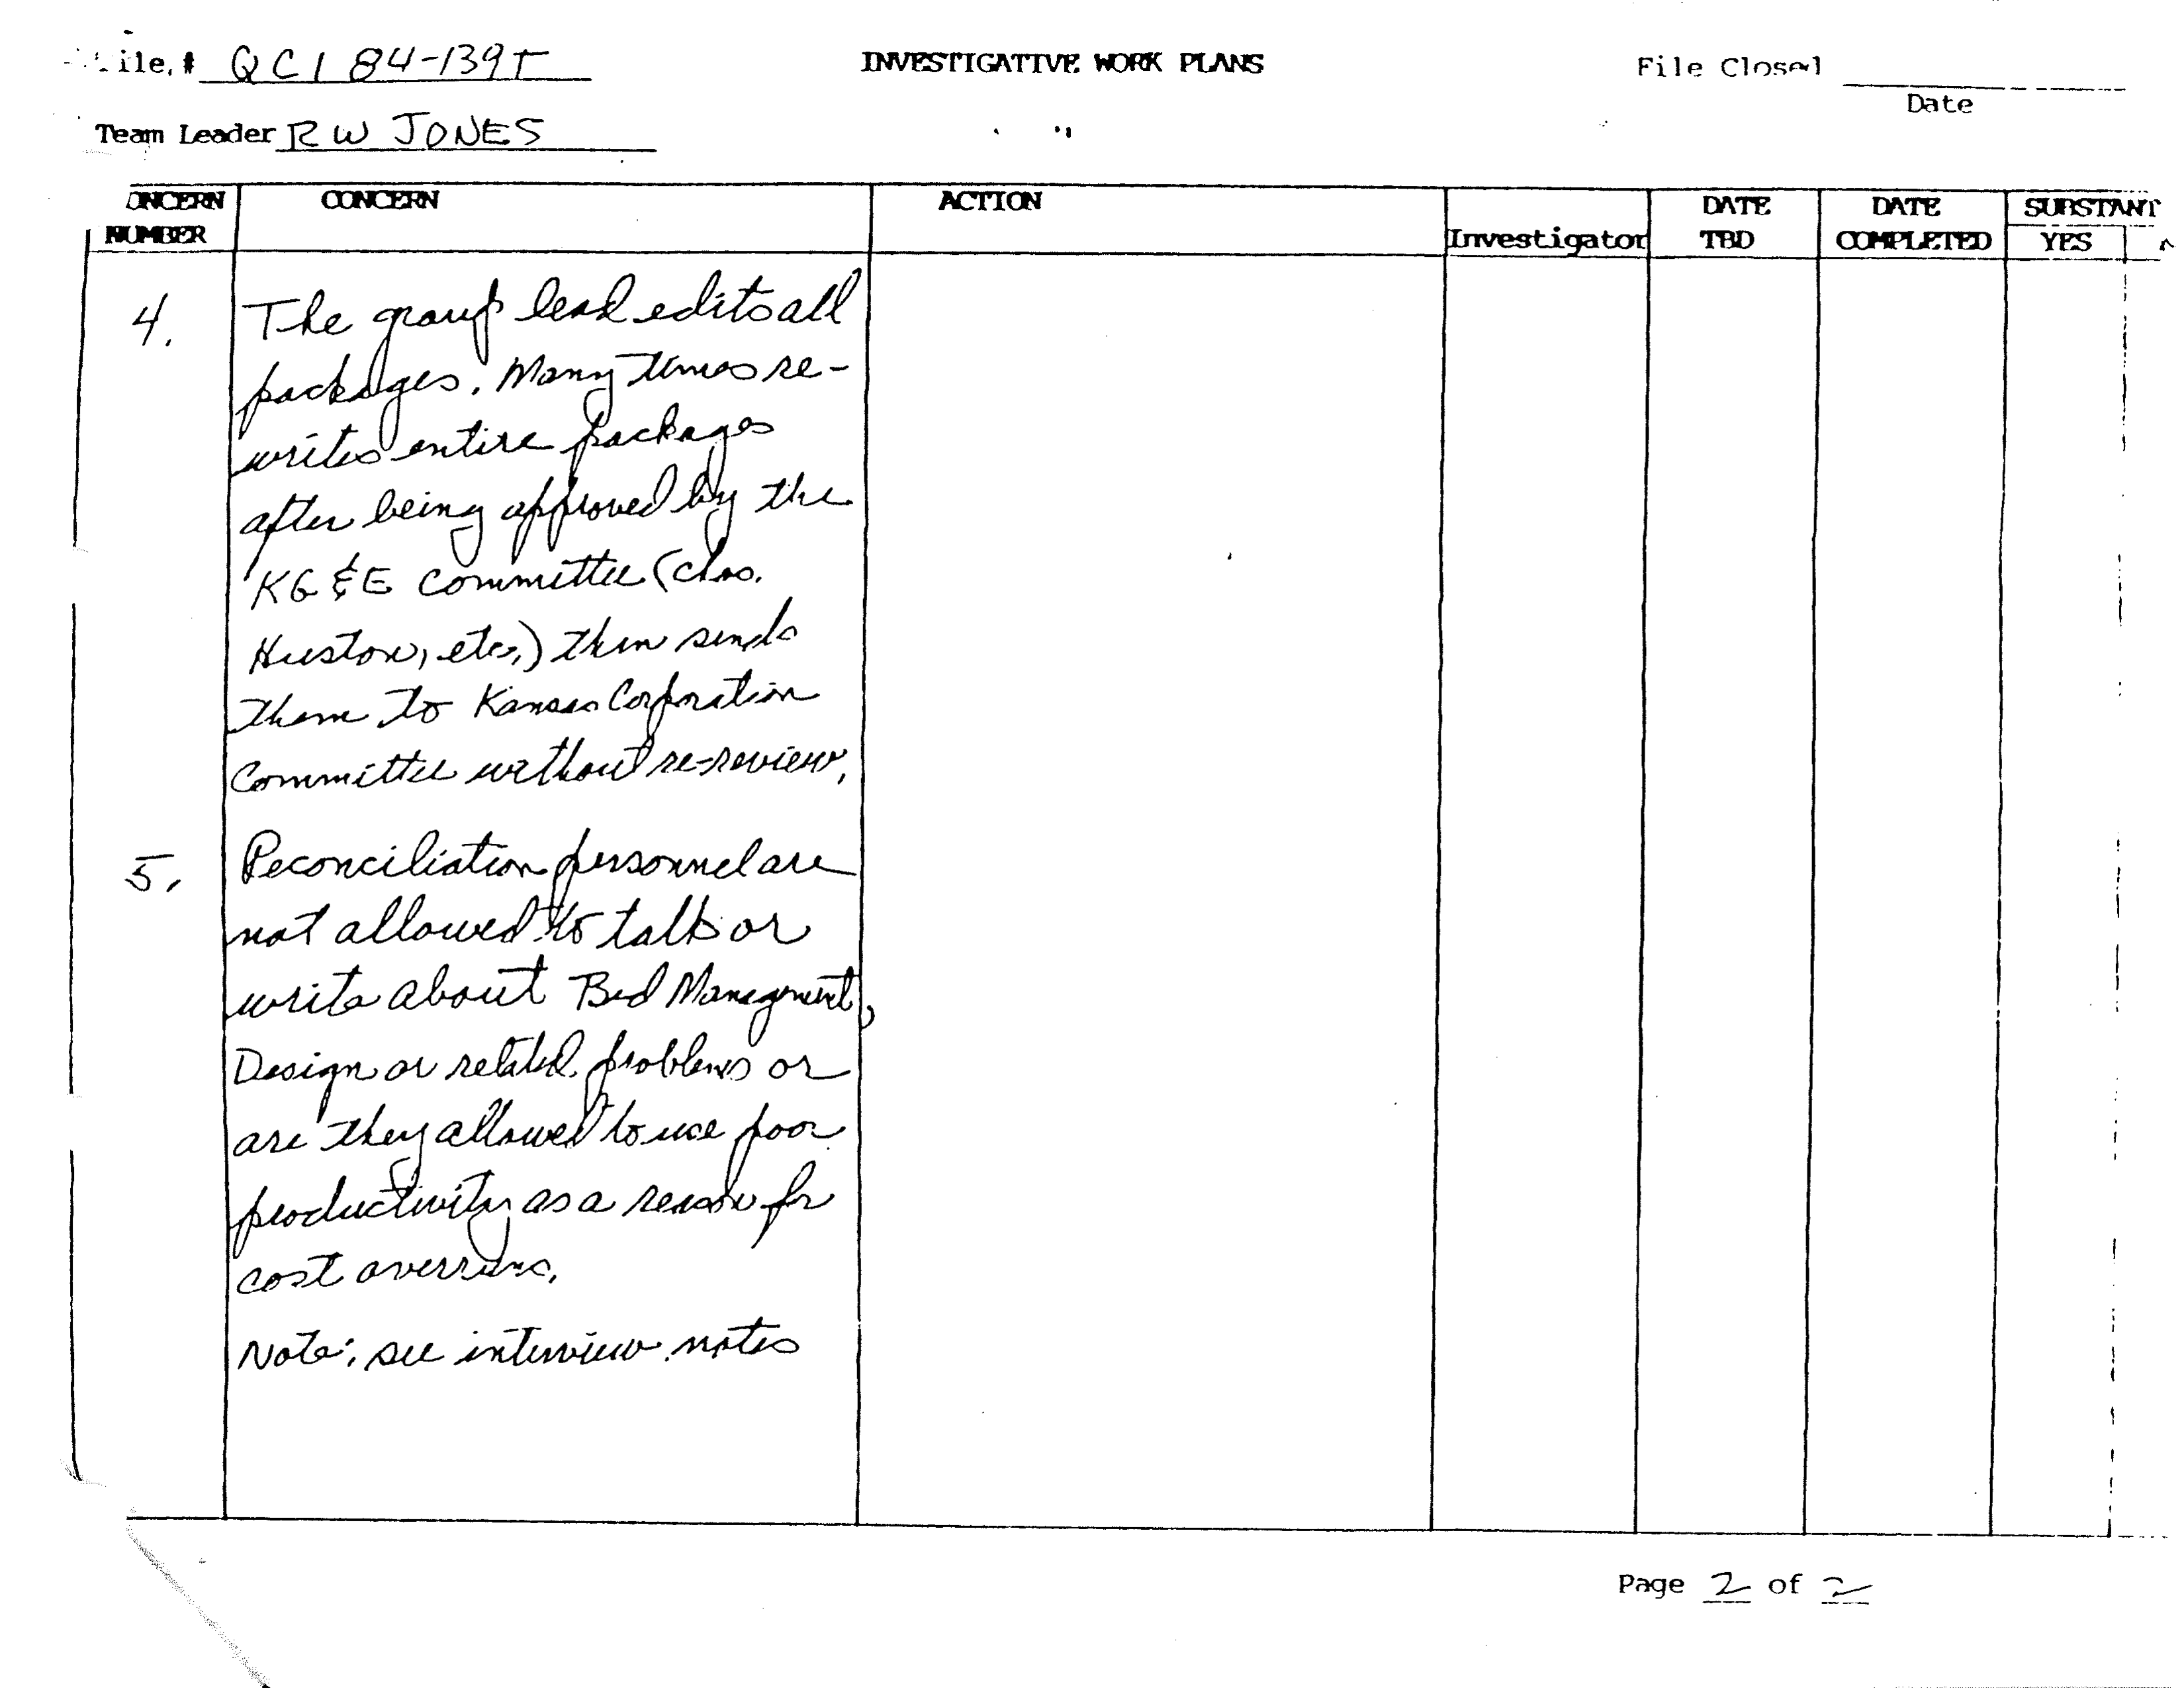 ile, # QCI 84-139T
INVESTIGATIVE WORK PLANS
File Closed
Date
Team Leader R W JONES
ONCERN NUMBER
CONCERN
ACTION
Investigator
DATE TBD
DATE COMPLETED
SUBSTANT
YES
4.
The group lead edits all
packages. Many times re-
writes entire packages
after being approved by the
KG&E committee (chas.
Huston, etc.) then sends
them to Kansas Corporation
Committee without re-review.
5.
Reconciliation personnel are
not allowed to talk or
write about Bad Managment,
Design or related problems or
are they allowed to use poor
productivity as a reason for
cost overruns.
Note: see interview notes
Page 2 of 2